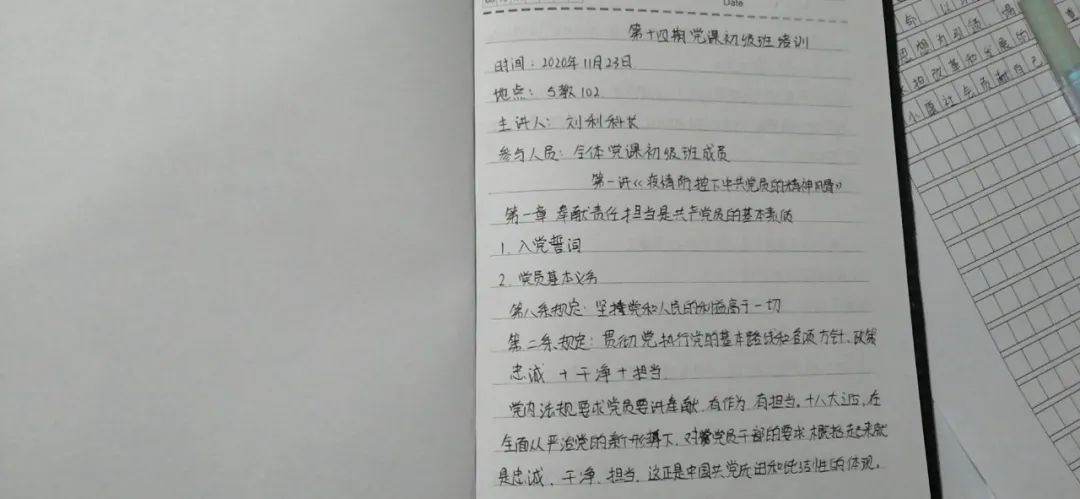 Date
第十四期党课初级班培训
时间：2020年11月23日
地点：5教102
主讲人：刘利科长
参与人员：全体党课初级班成员
第一讲《疫情防控下中共党员的精神风骨》
第一章 奉献责任担当是共产党员的基本素质
1. 入党誓词
2. 党员基本义务
第八条规定：坚持党和人民的利益高于一切
第二条规定：贯彻党执行党的基本路线和各项方针、政策
忠诚 + 干净 + 担当
党内法规要求党员要讲奉献，有作为，有担当。十八大过后，在
全面从严治党的新形势下，对党员干部的要求概括起来就
是忠诚、干净、担当，这正是中国共产党先进和纯洁性的体现。